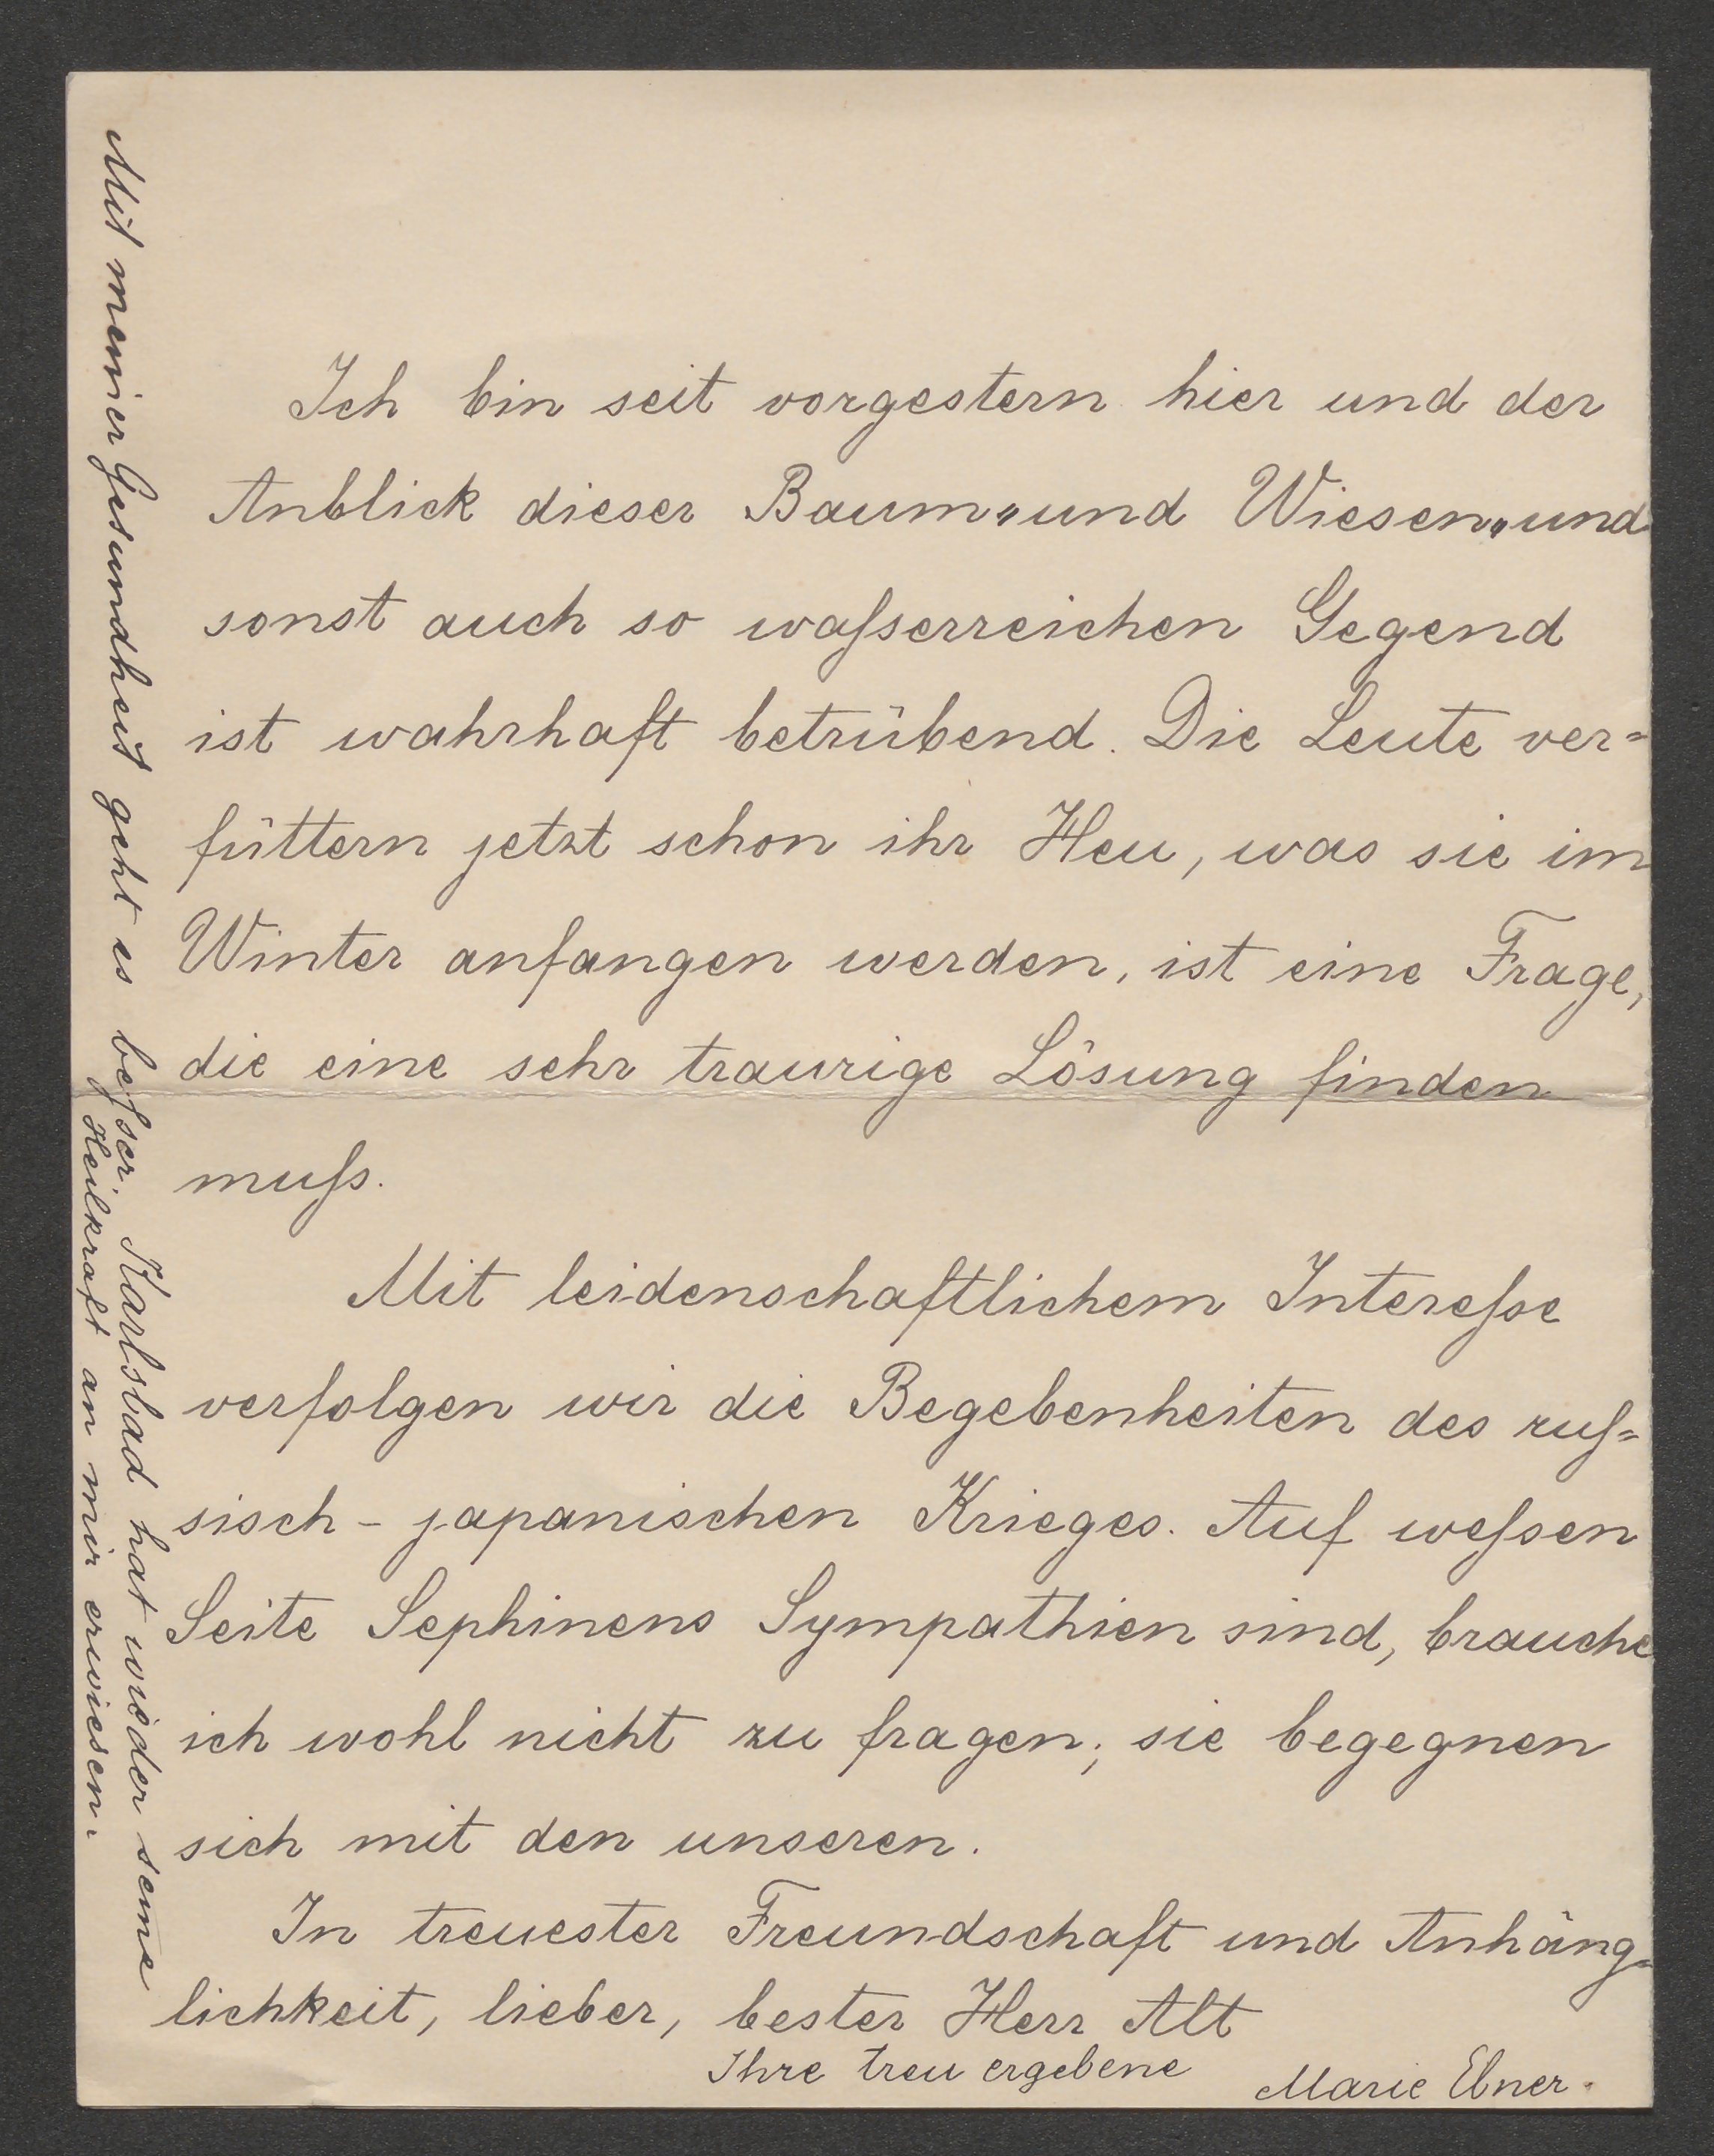 Ich bin seit vorgestern hier und der
Anblick dieser Baum„und Wiesen„und
sonst auch so waſserreichen Gegend
ist wahrhaft betrübend. Die Leute ver=
füttern jetzt schon ihr Heu, was sie im
Winter anfangen werden, ist eine Frage,
die eine sehr traurige Lösung finden
muſs.
Mit leidenschaftlichem Intereſse
verfolgen wir die Begebenheiten des ruſ=
sisch - japanischen Krieges. Auf weſsen
Seite Sephinens Sympathien sind, brauche
ich wohl nicht zu fragen; sie begegnen
sich mit den unseren.
In treuester Freundschaft und Anhäng=
lichkeit, lieber, bester Herr Alt
Ihre treu ergebene
Marie Ebner.
Mit meiner Gesundheit geht es beſser. Karlsbad hat wieder seine
Heilkraft an mir erwiesen.